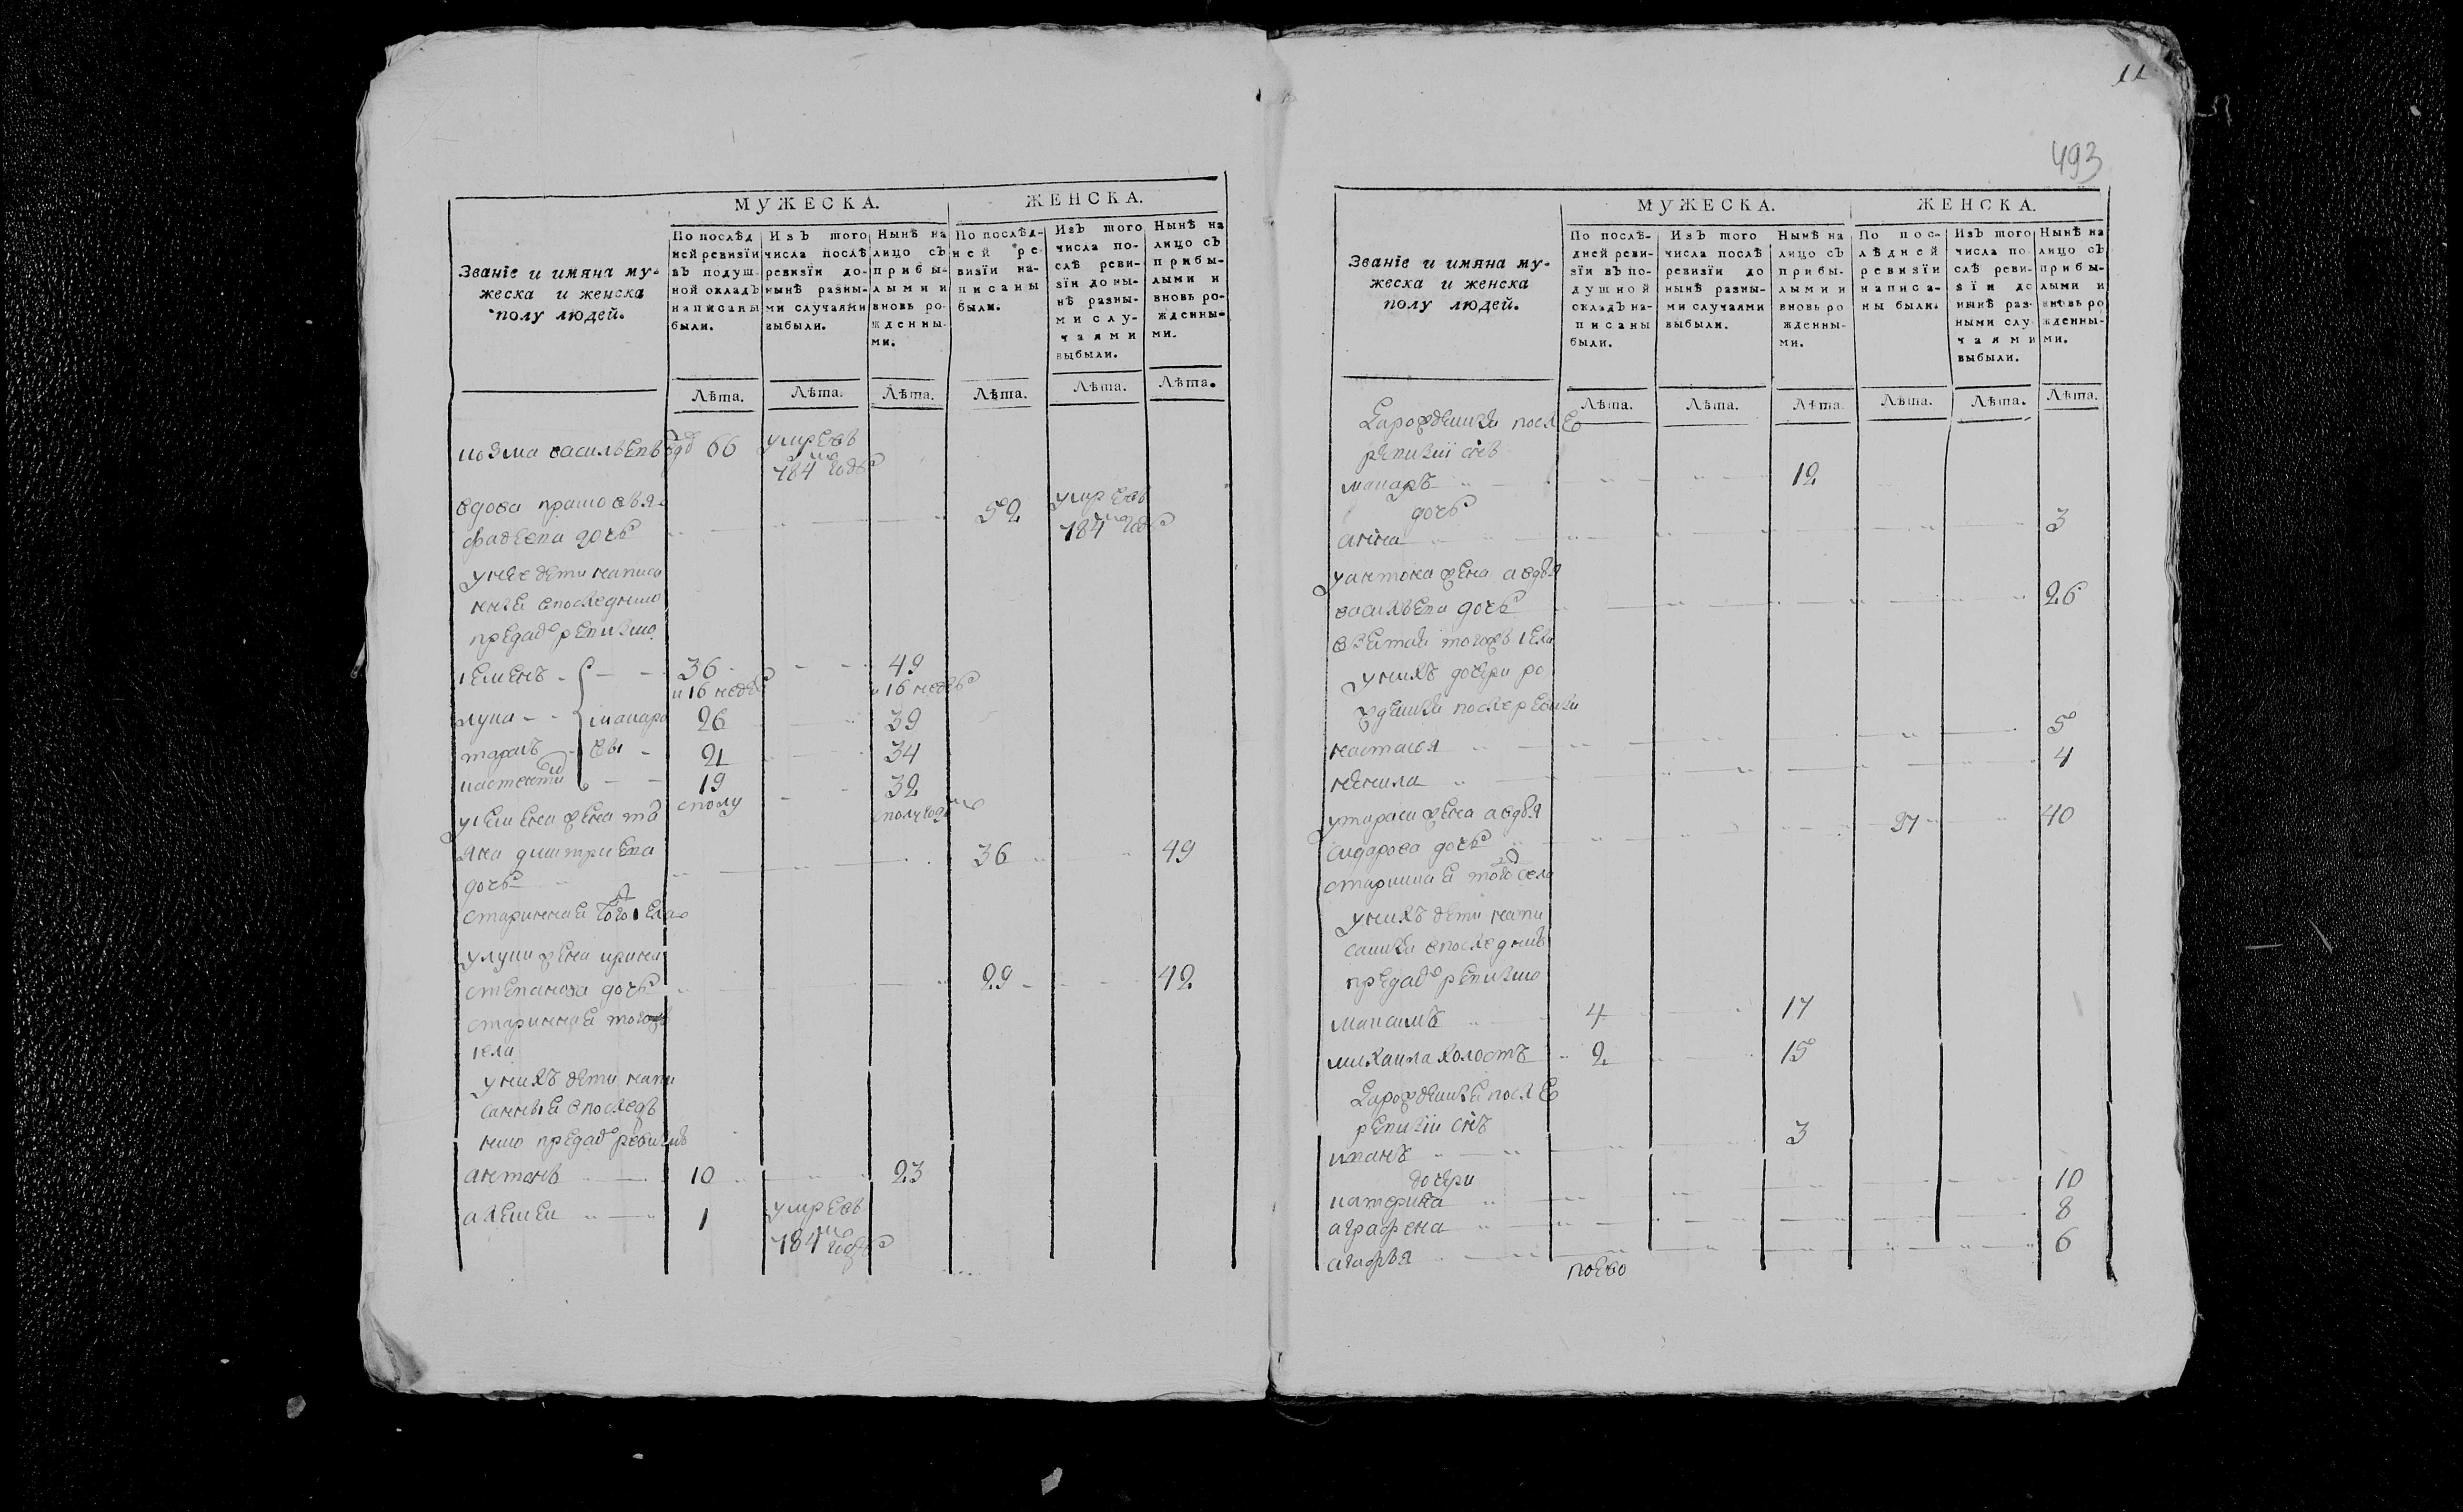 МУЖЕСКА.
ЖЕНСКА.
Званіе и имяна му-
жеска и женска
полу людей.
По послѣд
ней ревизіи
въ подуш-
ной окладъ
написаны
были.
Изъ того
числа послѣ
ревизіи до-
нынѣ разны-
ми случаями
выбыли.
Нынѣ на
лицо съ
прибы-
лыми и
вновь ро-
жденны-
ми.
По послѣд-
ней ре-
визіи на-
писаны
были.
Изъ того
числа по-
слѣ реви-
зіи до ны-
нѣ разны-
ми слу-
чаями
выбыли.
Нынѣ на
лицо съ
прибы-
лыми и
вновь ро-
жденны-
ми.
Лѣта. Лѣта. Лѣта. Лѣта. Лѣта. Лѣта.
козма васильевъ 66 умревъ
784 годѣ
вдова прасковья
фадеева дочь 52 умрева
784 годѣ
унее дети написа
нныя впоследнию
предъ ревизию
семенъ 36 49
и 16 недель и 16 недель
лука 26 39
тарасъ 21 34
19 32
сполу сполугод
усемена жена тать
яна дмитриева
дочь 36 49
стариннае того села
улуки жена ирина
степанова дочь 29 42
стариннае тогожъ
села
унихъ дети напи
санные впоследъ
нию предъ ревизию
антонъ 10 23
алексеи 1 умревъ
784 годѣ
11
493
МУЖЕСКА.
ЖЕНСКА.
Званіе и имяна му-
жеска и женска
полу людей.
По послѣ-
дней реви-
зіи въ по-
душной
окладъ на-
писаны
были.
Изъ того
числа послѣ
ревизіи до
нынѣ разны-
ми случаями
выбыли.
Нынѣ на
лицо съ
прибы-
лыми и
вновь ро
жденны-
ми.
По пос-
лѣдней
ревизіи
написа-
ны были.
Изъ того
числа по
слѣ реви-
зіи до
нынѣ раз-
ными слу
чаями
выбыли.
Нынѣ на
лицо съ
прибы-
лыми и
вновь ро
жденны-
ми.
Лѣта. Лѣта. Лѣта. Лѣта. Лѣта. Лѣта.
зарожденыи после
ревизіи снъ
макаръ 12
дочь
анна 3
уантона жена авдотья
васильева дочь 26
взятая тогожъ села
унихъ дочери ро
жденыи после ревизии
настасья 5
ненила 4
утараса жена авдотья
сидарова дочь 27 40
стариннае тогожъ села
унихъ дети напи
санныи впоследнию
предъ ревизию
максимъ 4 17
михаила холостъ 2 15
зарожденые после
ревизіи снъ
иванъ 3
дочери
катерина 10
аграфена 8
агафья 6
поево